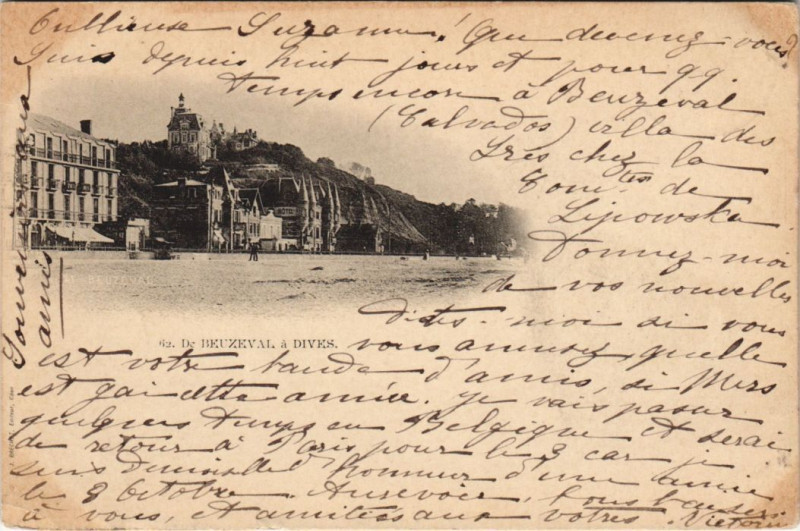 Suzanne! Que devenez-vous?
Suis depuis huit jours et pour qq.
temps encore à Beuzeval
(Calvados) villa des
chez la
Comtes de
Lipowska
Donnez-moi
de vos nouvelles
dites-moi si vous
vous amusez, quelle
est votre bande d'amis, si Mers
est gai cette année. Je vais passer
quelques temps en Belgique et serai
de retour à Paris pour le 3 car je
suis demoiselle d'honneur d'une amie
le 8 Octobre. Aurevoir, bons baisers
à vous, et amitiés aux votres.
Souvenir
amis
62. De BEUZEVAL à DIVES.